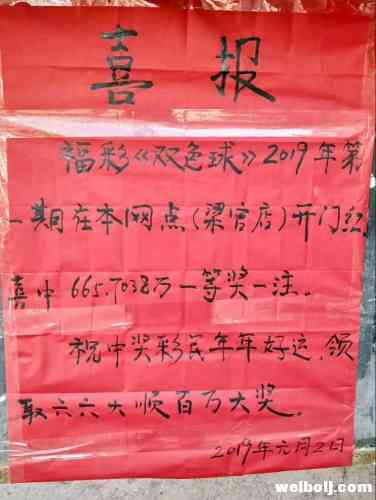 喜报
福彩《双色球》2019年第
一期在本网点(梁官店)开门红,
喜中665.7038万一等奖一注。
祝中奖彩民年年好运,领
取六六大顺百万大奖。
2019年元月2日
welbolj.com